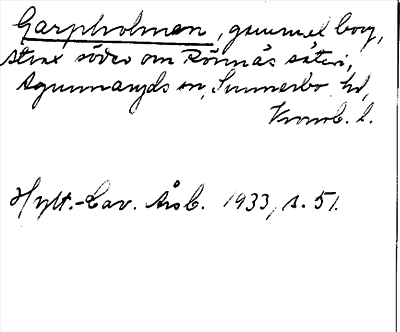 Garpholmen, gammal borg,
strax söder om Rönnäs säteri,
Agunnaryds sn, Sunnerbo hd,
Kronob. l.
Hylt.-Cav. Årsb. 1933, s. 51.